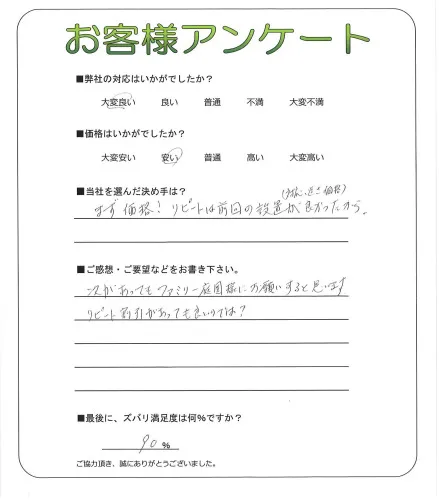 お客様アンケート
■弊社の対応はいかがでしたか？
大変良い 良い 普通 不満 大変不満
■価格はいかがでしたか？
大変安い 安い 普通 高い 大変高い
■当社を選んだ決め手は？
価格）
まず 価格！ リピートは前回の設置が良かったから。
■ご感想・ご要望などをお書き下さい。
次があってもファミリー庭園様にお願いすると思います
リピート割引があっても良いのでは？
■最後に、ズバリ満足度は何%ですか？
90 %
ご協力頂き、誠にありがとうございました。